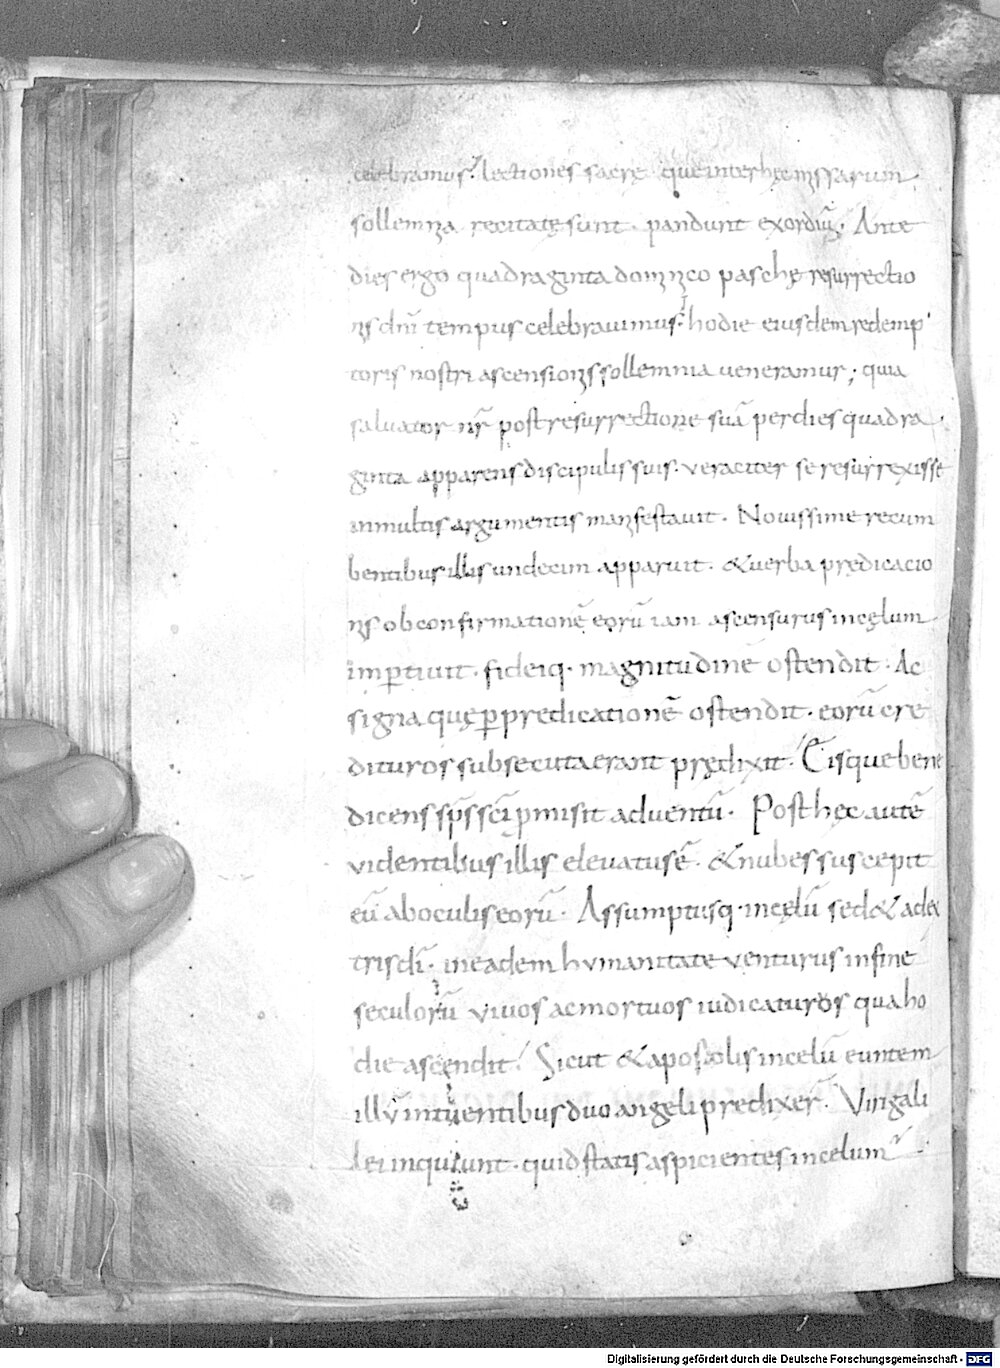 celebramus. lectiones sacrę que inter hęc missarum
sollemnia recitatę sunt. pandunt exordiū. Ante
dies ergo quadraginta dominico paschę resurrectio
nis dn̄i tempus celebravimus. hodie eiusdem redemp
toris nostri ascensionis sollemnia veneramur; quia
salvator nr̄ post resurrectione suā per dies quadra
ginta apparens discipulis suis. veraciter se resurrexisse
in multis argumentis manifestavit. Novissime recum
bentibus illis undecim apparuit. & verba prędicacio
nis ob confirmationē eorū iam ascensurus in cęlum
imꝑtivit. fideiq· magnitudinē ostendit. Ac
signa quę ꝑ predicationē ostendit. eorū cre
dituros subsecuta erant prędixit. Eisque bene
dicens sp̄s sc̄i ꝓmisit adventū. Post hęc autē
videntibus illis elevatus ē. & nubes suscepit
eū ab oculis eorū. Assumptusq· in cęlū sed& ad ex
tris dī. in eadem hvmanitate venturus in fine
seculorū vivos ac mortuos iudicaturos qua ho
die ascendit. Sicut & apostolis in celū euntem
illv̄ intuentibus duo angeli predixer̄. Viri gali
lei inquiunt. quid statis aspicientes in celum
Digitalisierung gefördert durch die Deutsche Forschungsgemeinschaft - DFG